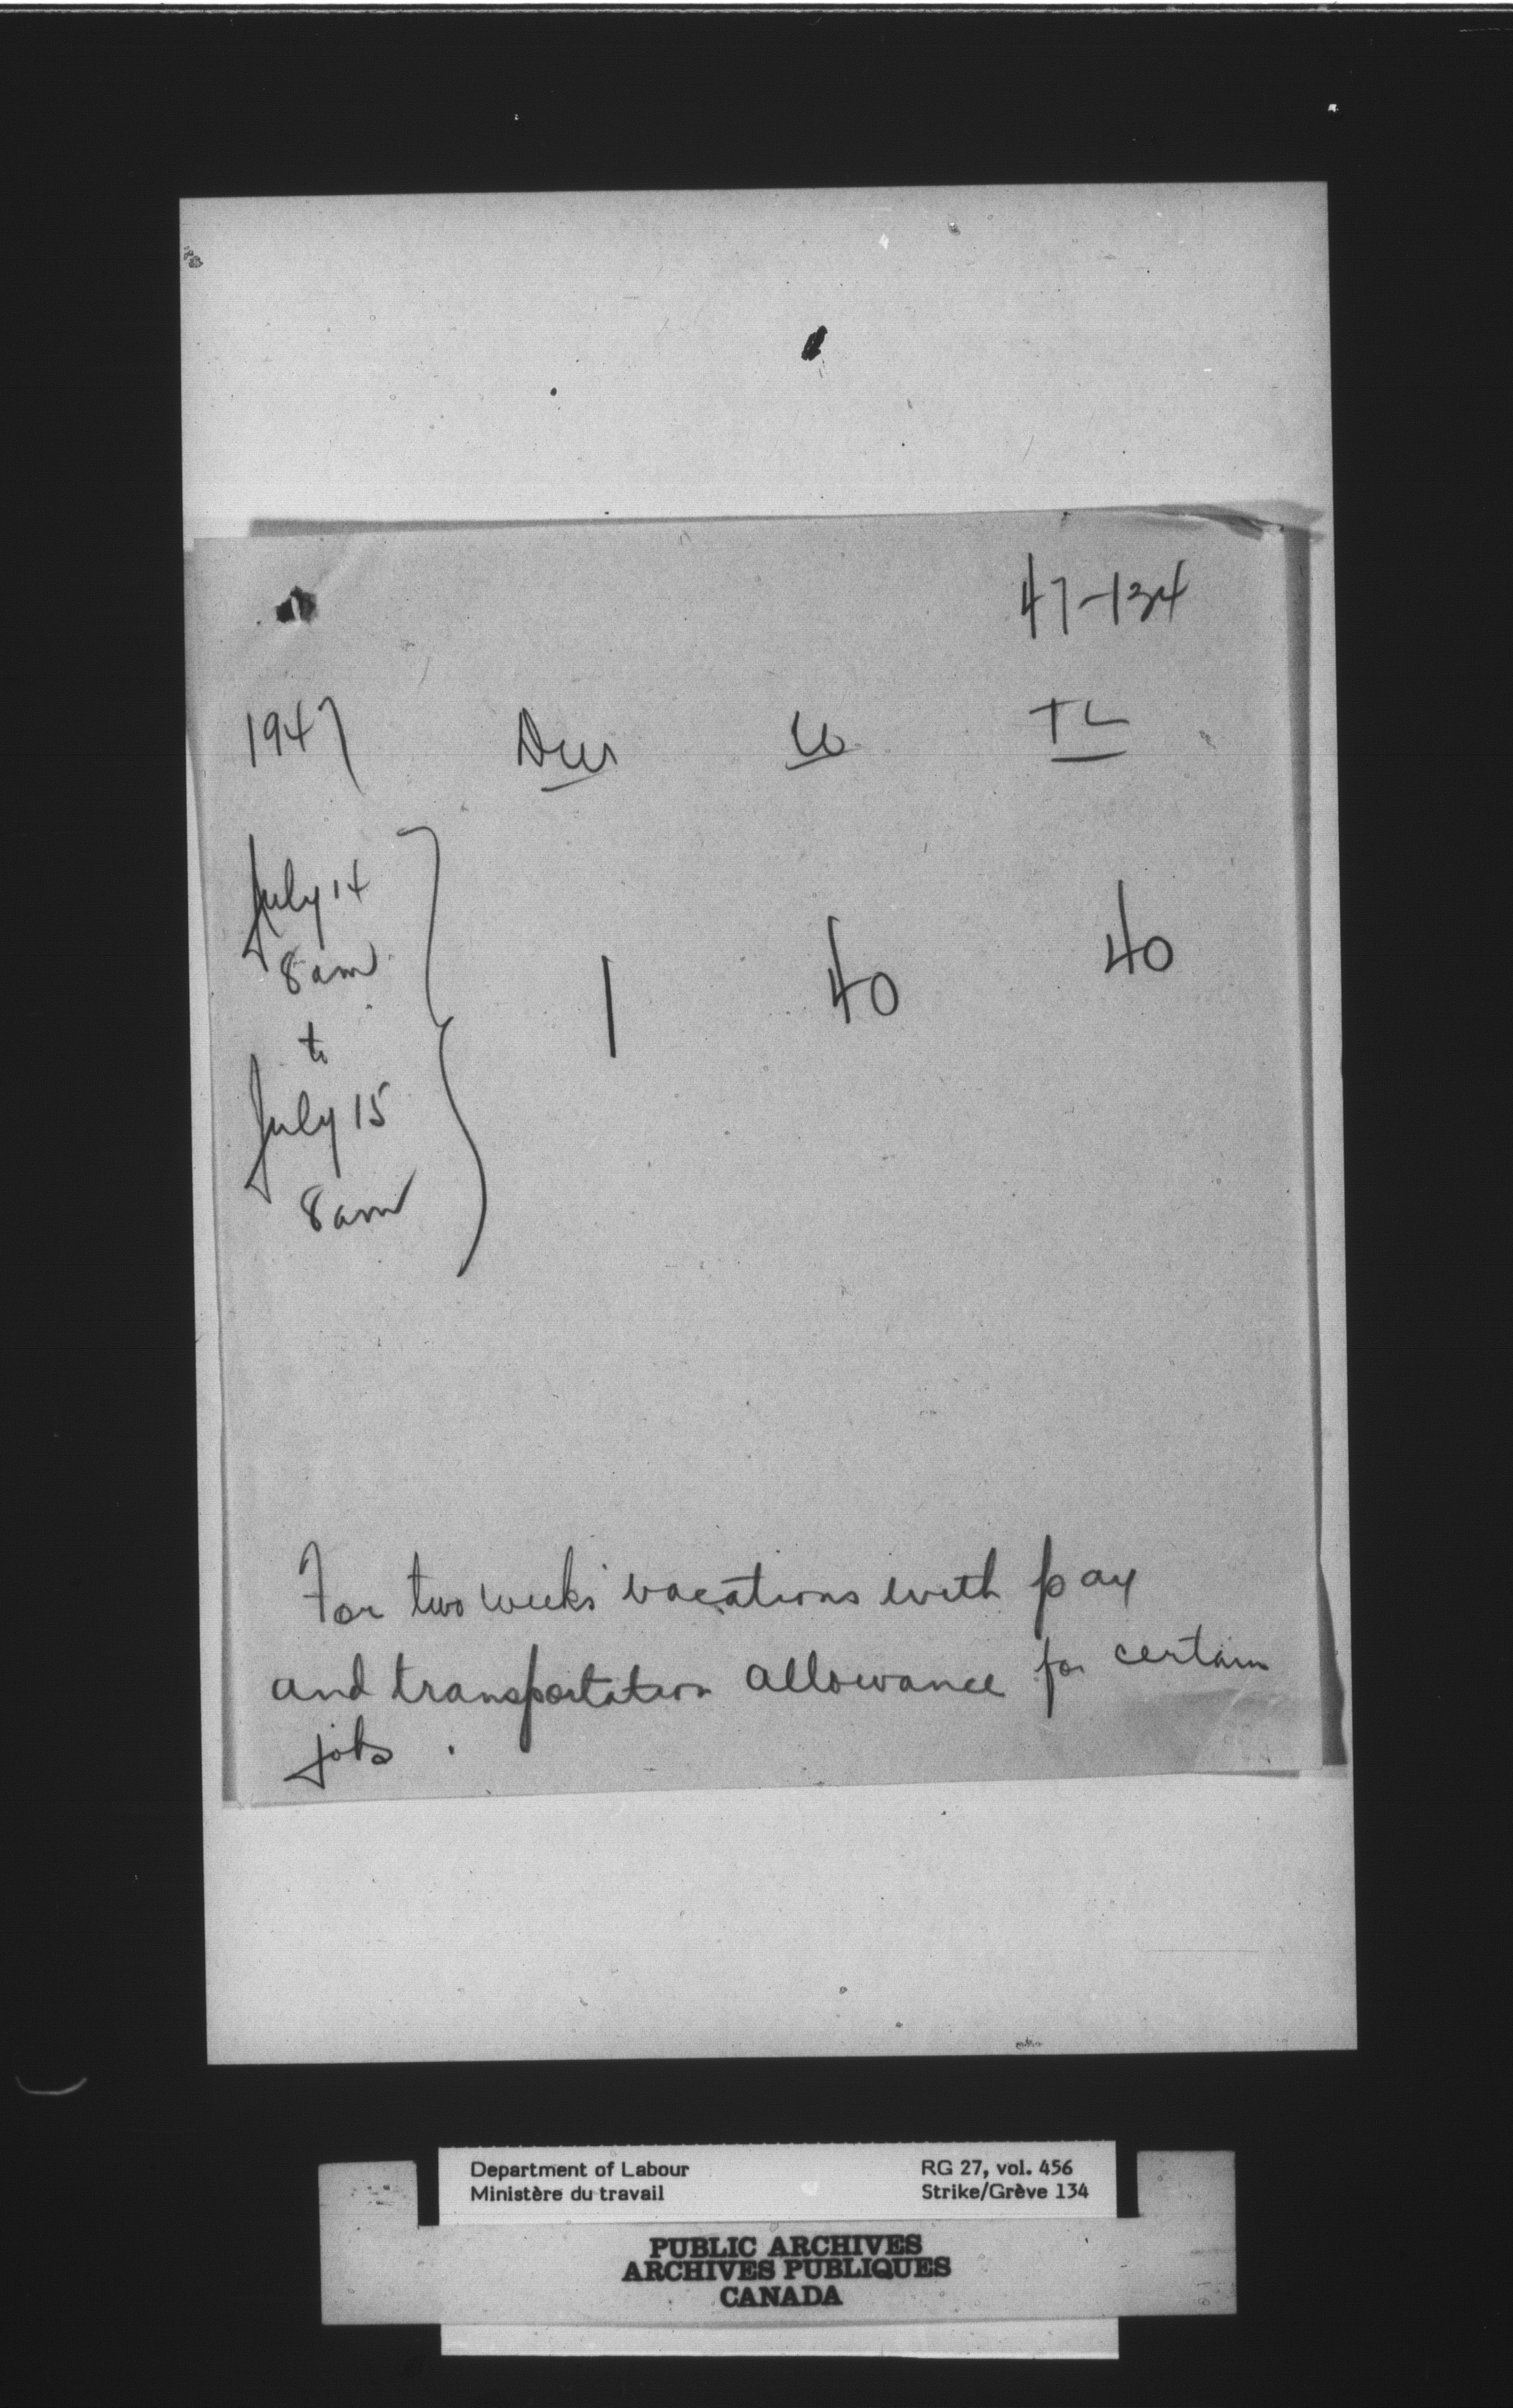 47-134
1947 Dur W TL
July 14
8 am
to
July 15
8 am
1 40 40
For two weeks' vacations with pay
and transportation allowance for certain
jobs.
Department of Labour
Ministère du travail
RG 27, vol. 456
Strike/Grève 134
PUBLIC ARCHIVES
ARCHIVES PUBLIQUES
CANADA